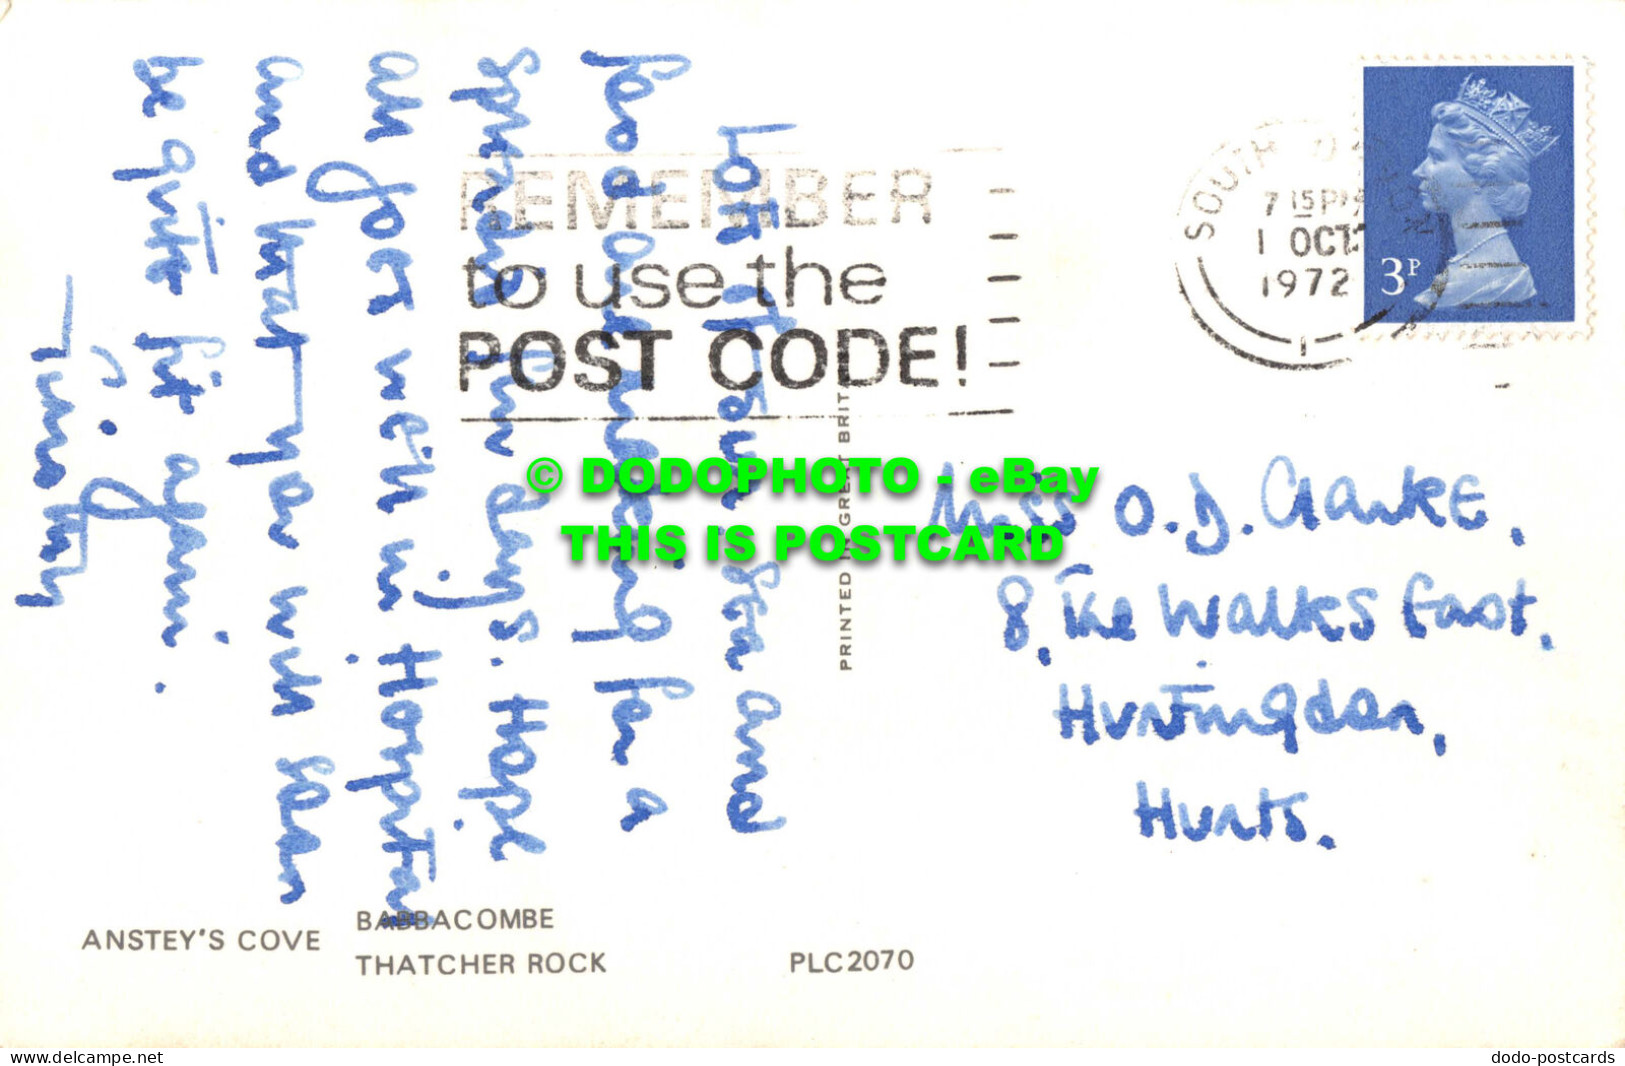 Lots of sun, sea and
food and
splendid few days. Hope
all goes well in Horpeton
and that you will soon
be quite fit again.
C. J.
Timothy
REMEMBER
to use the
POST CODE!
SOUTH DEVON
7 15 PM
1 OCT
1972
3P
PRINTED IN GREAT BRIT
© DODOPHOTO - eBay
THIS IS POSTCARD
Miss O.D. Clarke,
8, The Walks East,
Huntingdon,
Hunts.
ANSTEY'S COVE
BABBACOMBE
THATCHER ROCK
PLC2070
www.delcampe.net
dodo-postcards